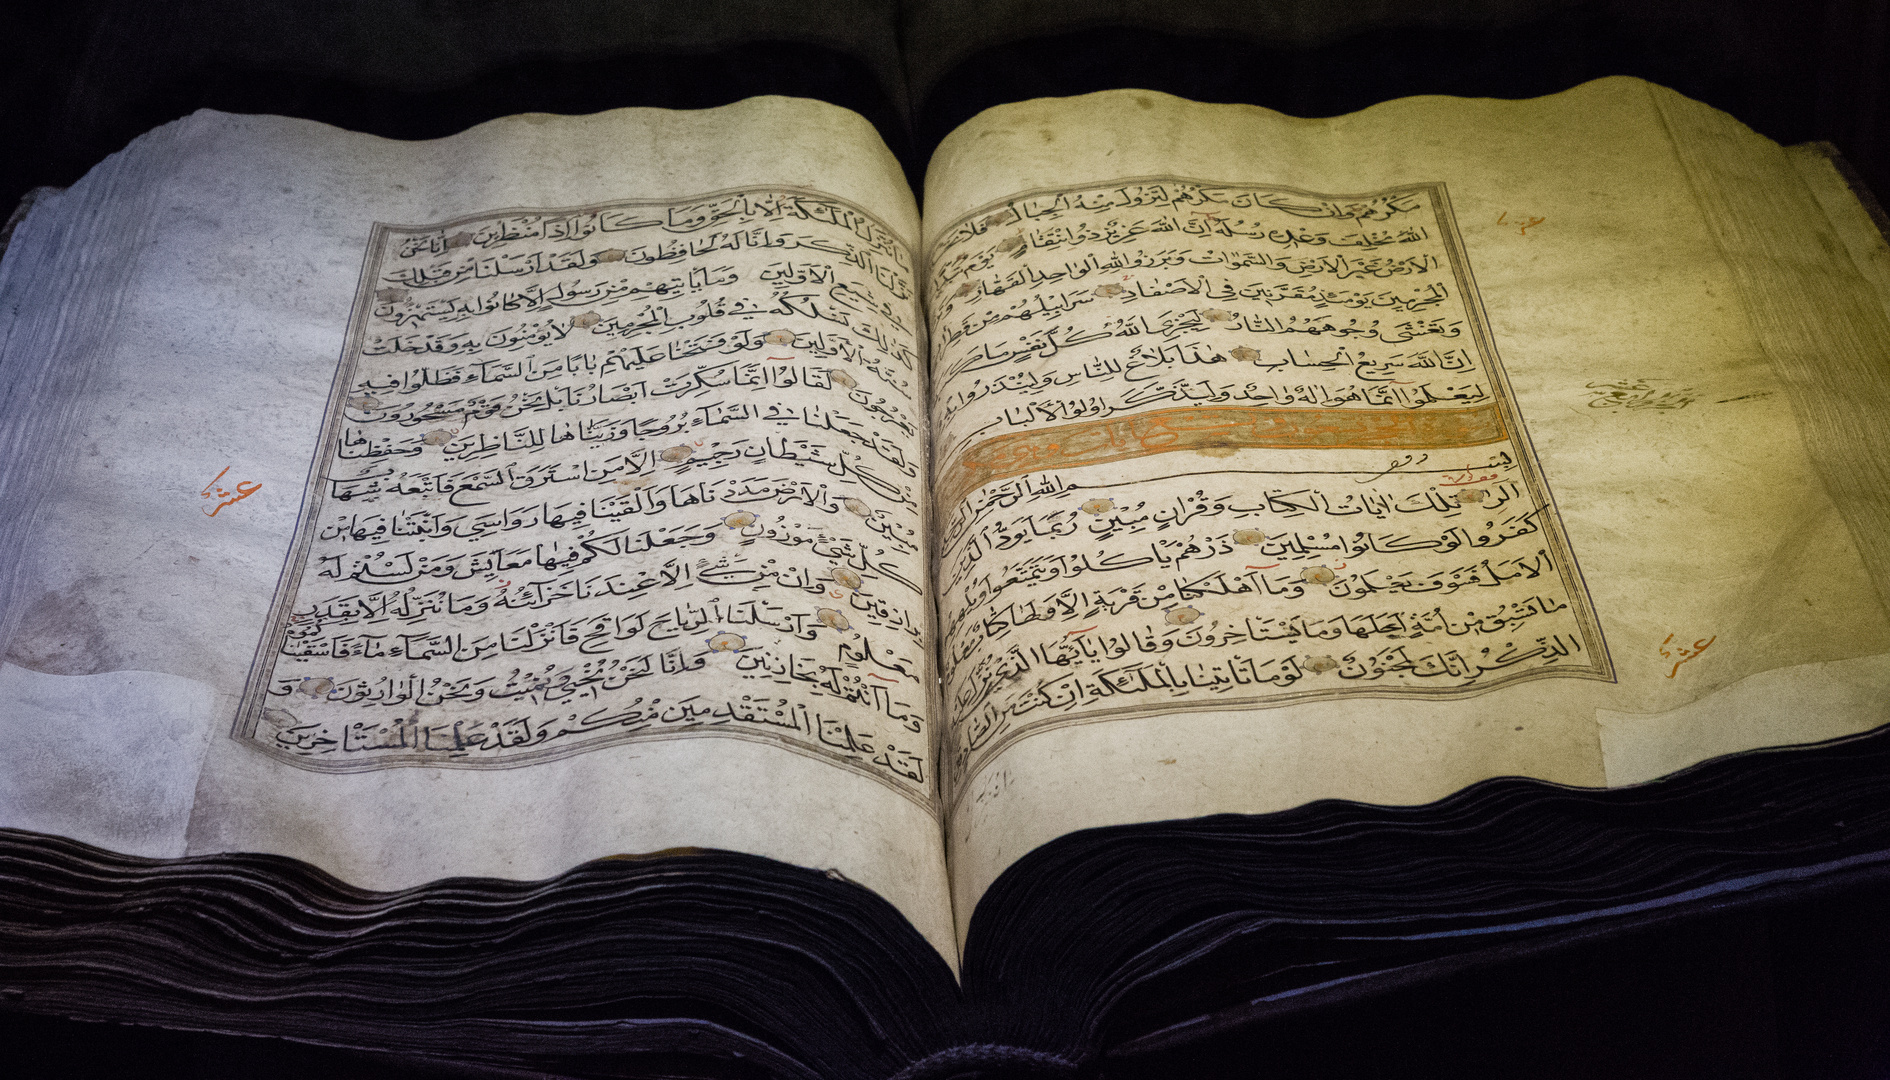 مكرهم وان كان مكرهم لتزول منه الجبال فلا تحسبن
الله مخلف وعده رسله ان الله عزيز ذو انتقام يوم تبدل
الارض غير الارض والسموات وبرزوا لله الواحد القهار وترى
المجرمين يومئذ مقرنين في الاصفاد سرابيلهم من قطران
وتغشى وجوههم النار ليجزي الله كل نفس ما كسبت
ان الله سريع الحساب هذا بلاغ للناس ولينذروا به
ليعلموا انما هو اله واحد وليذكر اولوا الالباب
بسم الله الرحمن الرحيم
الر تلك ايات الكتاب وقران مبين ربما يود الذين
كفروا لو كانوا مسلمين ذرهم ياكلوا ويتمتعوا ويلههم
الامل فسوف يعلمون وما اهلكنا من قرية الا ولها كتاب معلوم
ما تسبق من امة اجلها وما يستاخرون وقالوا يا ايها الذي نزل عليه
الذكر انك لمجنون لوما تاتينا بالملئكة ان كنت من الصادقين
عشر
ما ننزل الملئكة الا بالحق وما كانوا اذا منظرين انا نحن
نزلنا الذكر وانا له لحافظون ولقد ارسلنا من قبلك
في شيع الاولين وما ياتيهم من رسول الا كانوا به يستهزؤن
كذلك نسلكه في قلوب المجرمين لا يؤمنون به وقد خلت
سنة الاولين ولو فتحنا عليهم بابا من السماء فظلوا فيه
يعرجون لقالوا انما سكرت ابصارنا بل نحن قوم مسحورون
ولقد جعلنا في السماء بروجا وزيناها للناظرين وحفظناها
من كل شيطان رجيم الا من استرق السمع فاتبعه شهاب
مبين والارض مددناها والقينا فيها رواسي وانبتنا فيها من
كل شيء موزون وجعلنا لكم فيها معايش ومن لستم له
برازقين وان من شيء الا عندنا خزائنه وما ننزله الا بقدر
معلوم وارسلنا الرياح لواقح فانزلنا من السماء ماء فاسقيناكموه
وما انتم له بخازنين وانا لنحن نحيي ونميت ونحن الوارثون و
لقد علمنا المستقدمين منكم ولقد علمنا المستاخرين
عشر